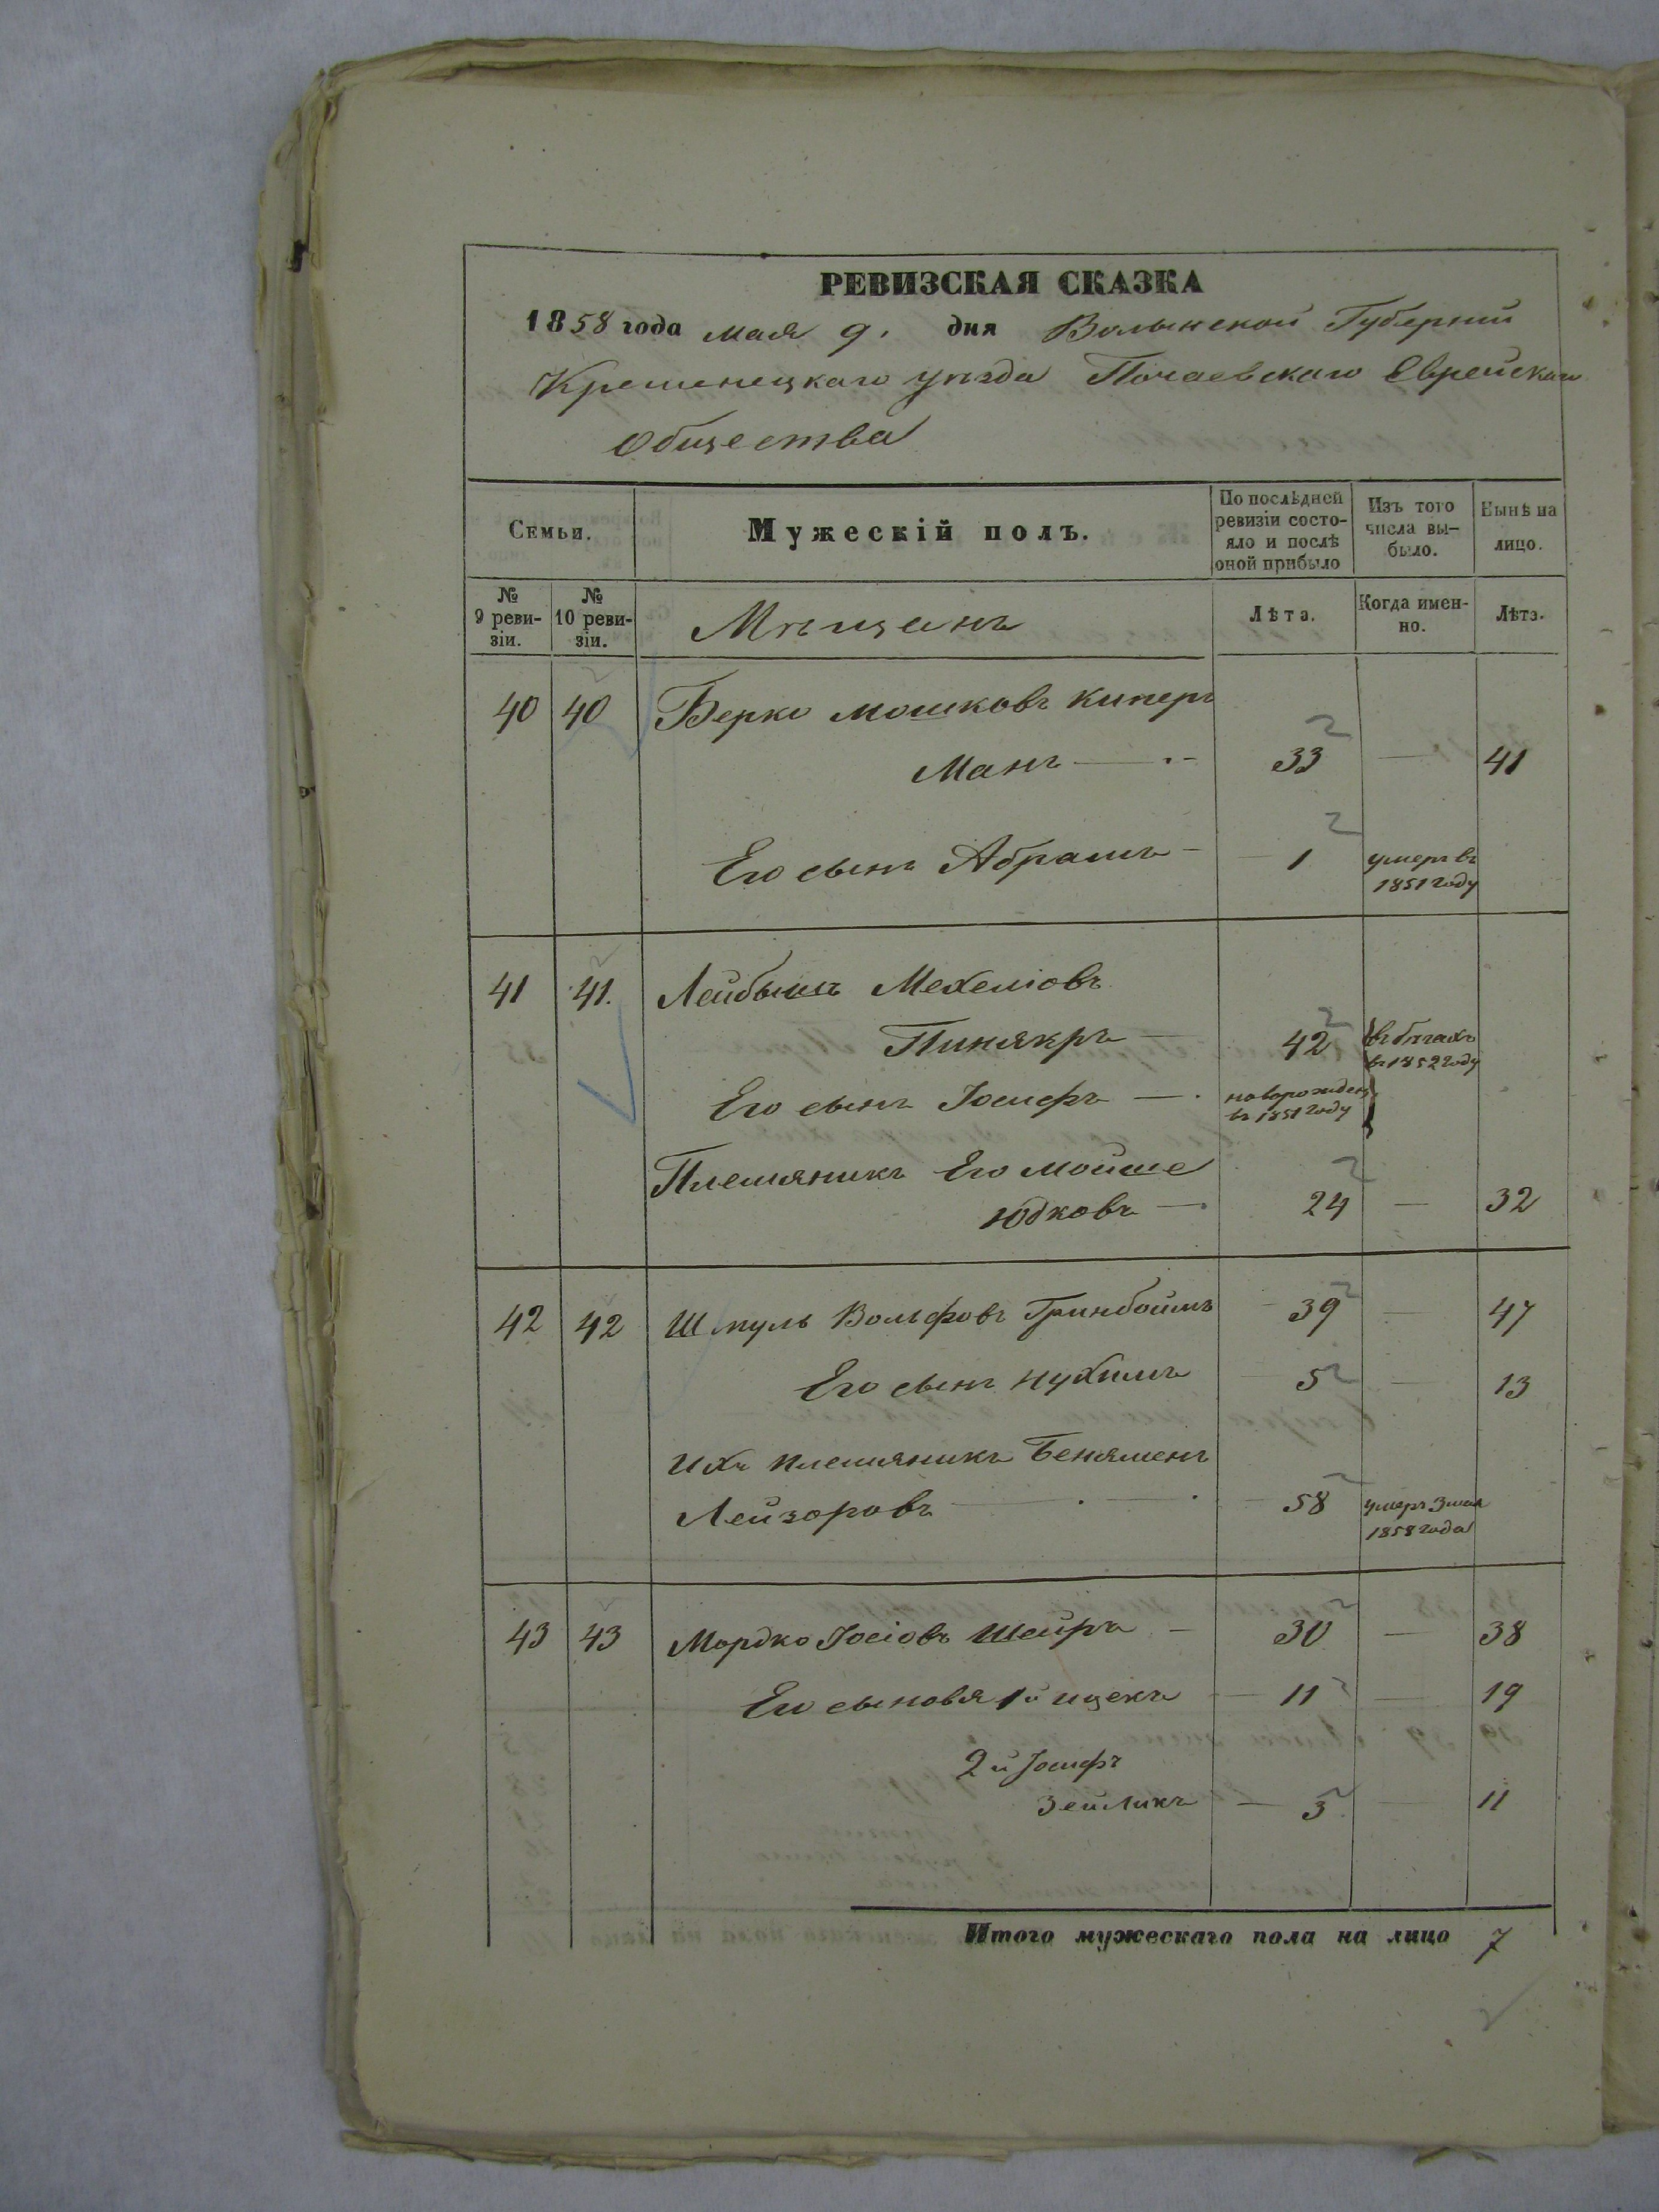 РЕВИЗСКАЯ СКАЗКА
1858 года мая 9. дня Волынской Губерніи
Кременецкаго уѣзда Почаевскаго Еврейскаго
Общества
Семьи.
Мужескій полъ.
По послѣдней ревизіи состо-
яло и послѣ оной прибыло
Изъ того числа вы-
было.
Нынѣ на лицо.
№ 9 реви-
зіи.
№ 10 реви-
зіи.
Мѣщанъ
Лѣта.
Когда имен-
но.
Лѣта.
40 40 Берко Мошковъ Кипер
Манъ 33 — 41
Его сынъ Абрамъ — 1 умеръ въ
1851 году
41 41. Лейбышъ Мехеліовъ
Пинякръ — 42 въ бѣгахъ
въ 1852 году
Его сынъ Іосифъ — новорожден
въ 1851 году
Племяникъ Его Мойше
Юдковъ — 24 — 32
42 42 Шмуль Вольфовъ Гринбоймъ 39 — 47
Его сынъ Нухимъ 5 — 13
Ихъ племяникъ Бенямен
Лейзоровъ — 58 умеръ 3 мая
1858 года
43 43 Мордко Іосіовъ Шейръ — 30 — 38
Его сыновья 1й Ицекъ — 11 — 19
2й Іосифъ
Зейликъ — 3 — 11
Итого мужескаго пола на лицо 7